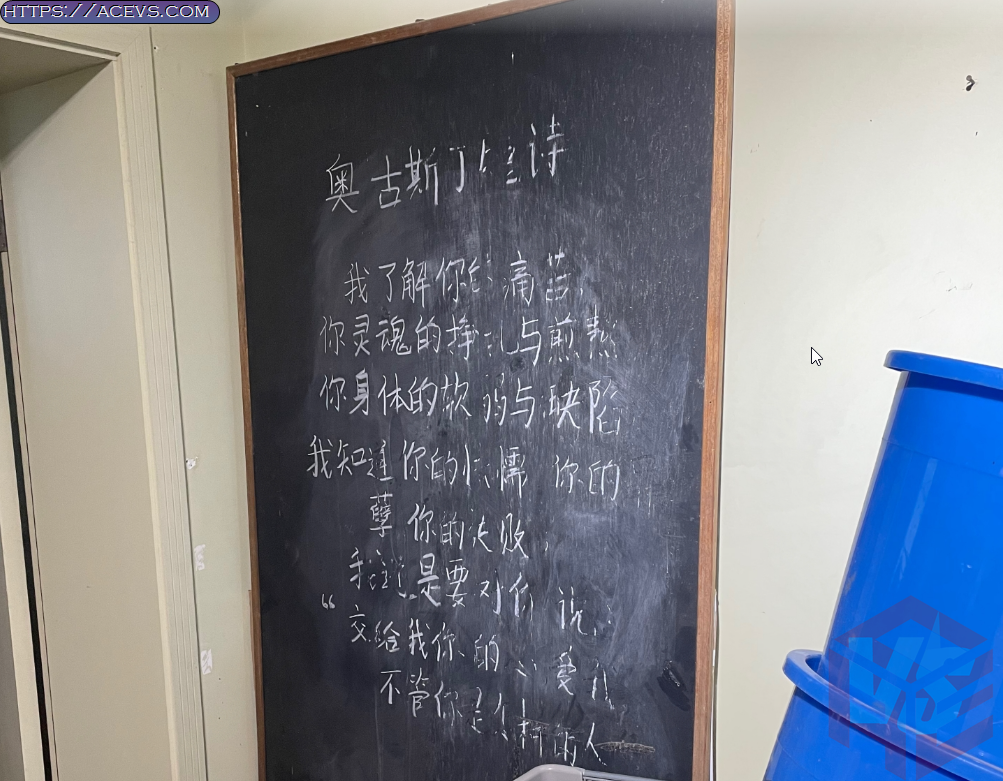 HTTPS://ACEVS.COM
奥古斯丁 诗
我了解你 痛苦,
你灵魂的挣扎与煎熬
你身体的软弱与缺陷
我知道你的怯懦 你的
孽 你的失败,
我 是要对你说:
“交给我你的心 爱我
不管你是什 的人